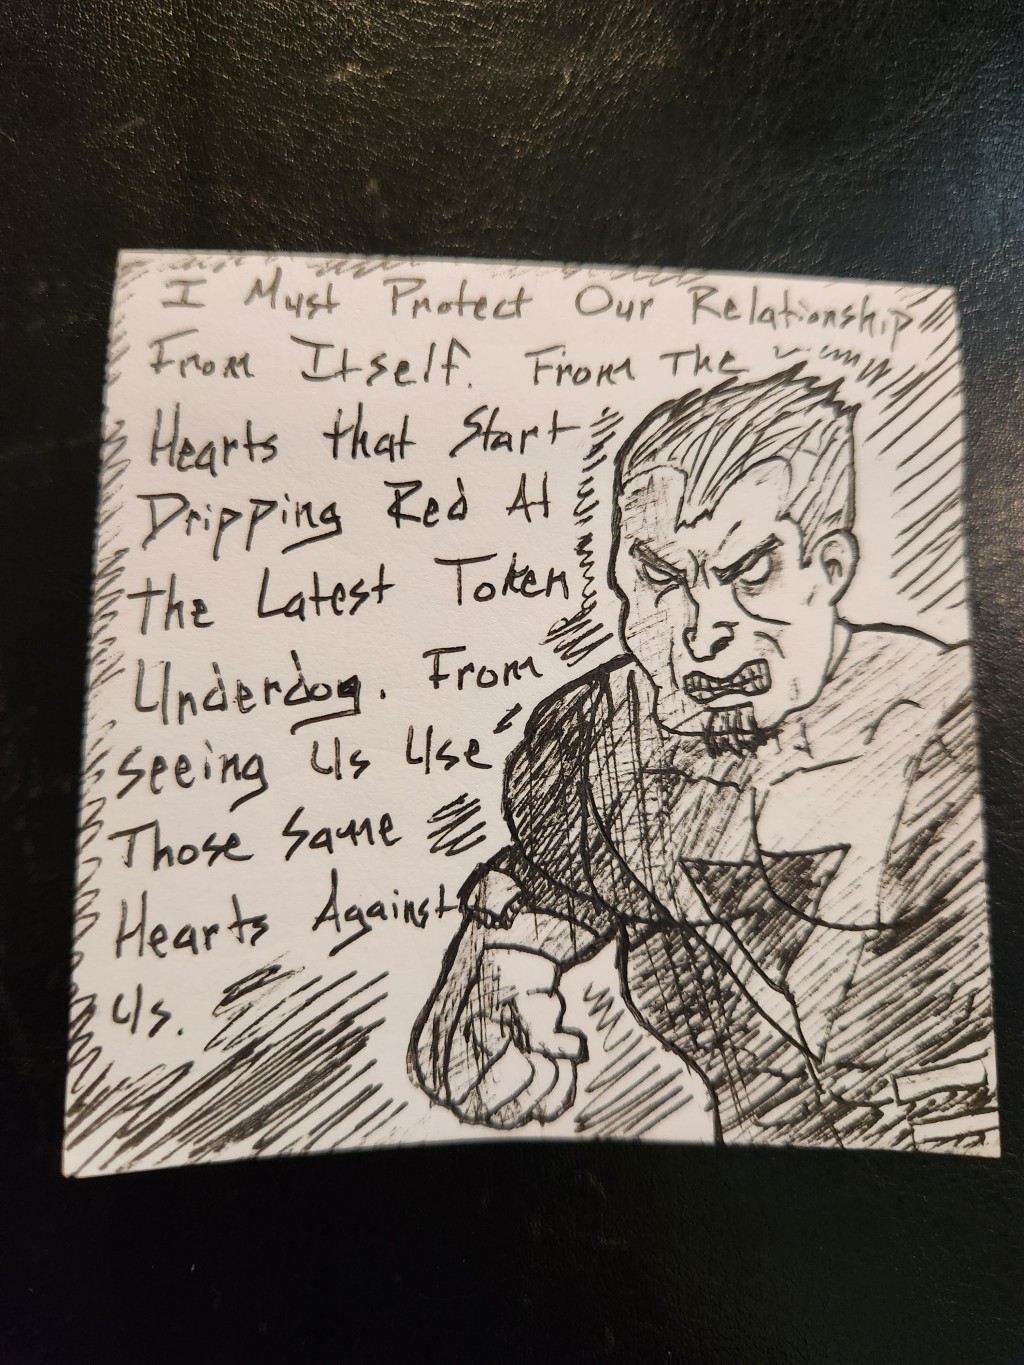 I Must Protect Our Relationship
From Itself. From The
Hearts that Start
Dripping Red At
the Latest Token
Underdog. From
seeing Us Use
Those Same
Hearts Against
Us.